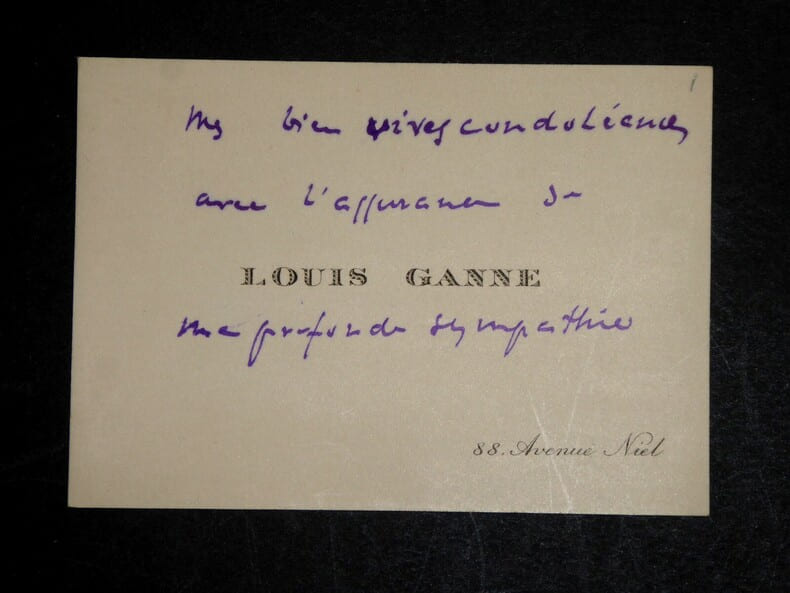 Mes bien vives condoléances
avec l'assurance de
LOUIS GANNE
ma profonde sympathie
88. Avenue Niel